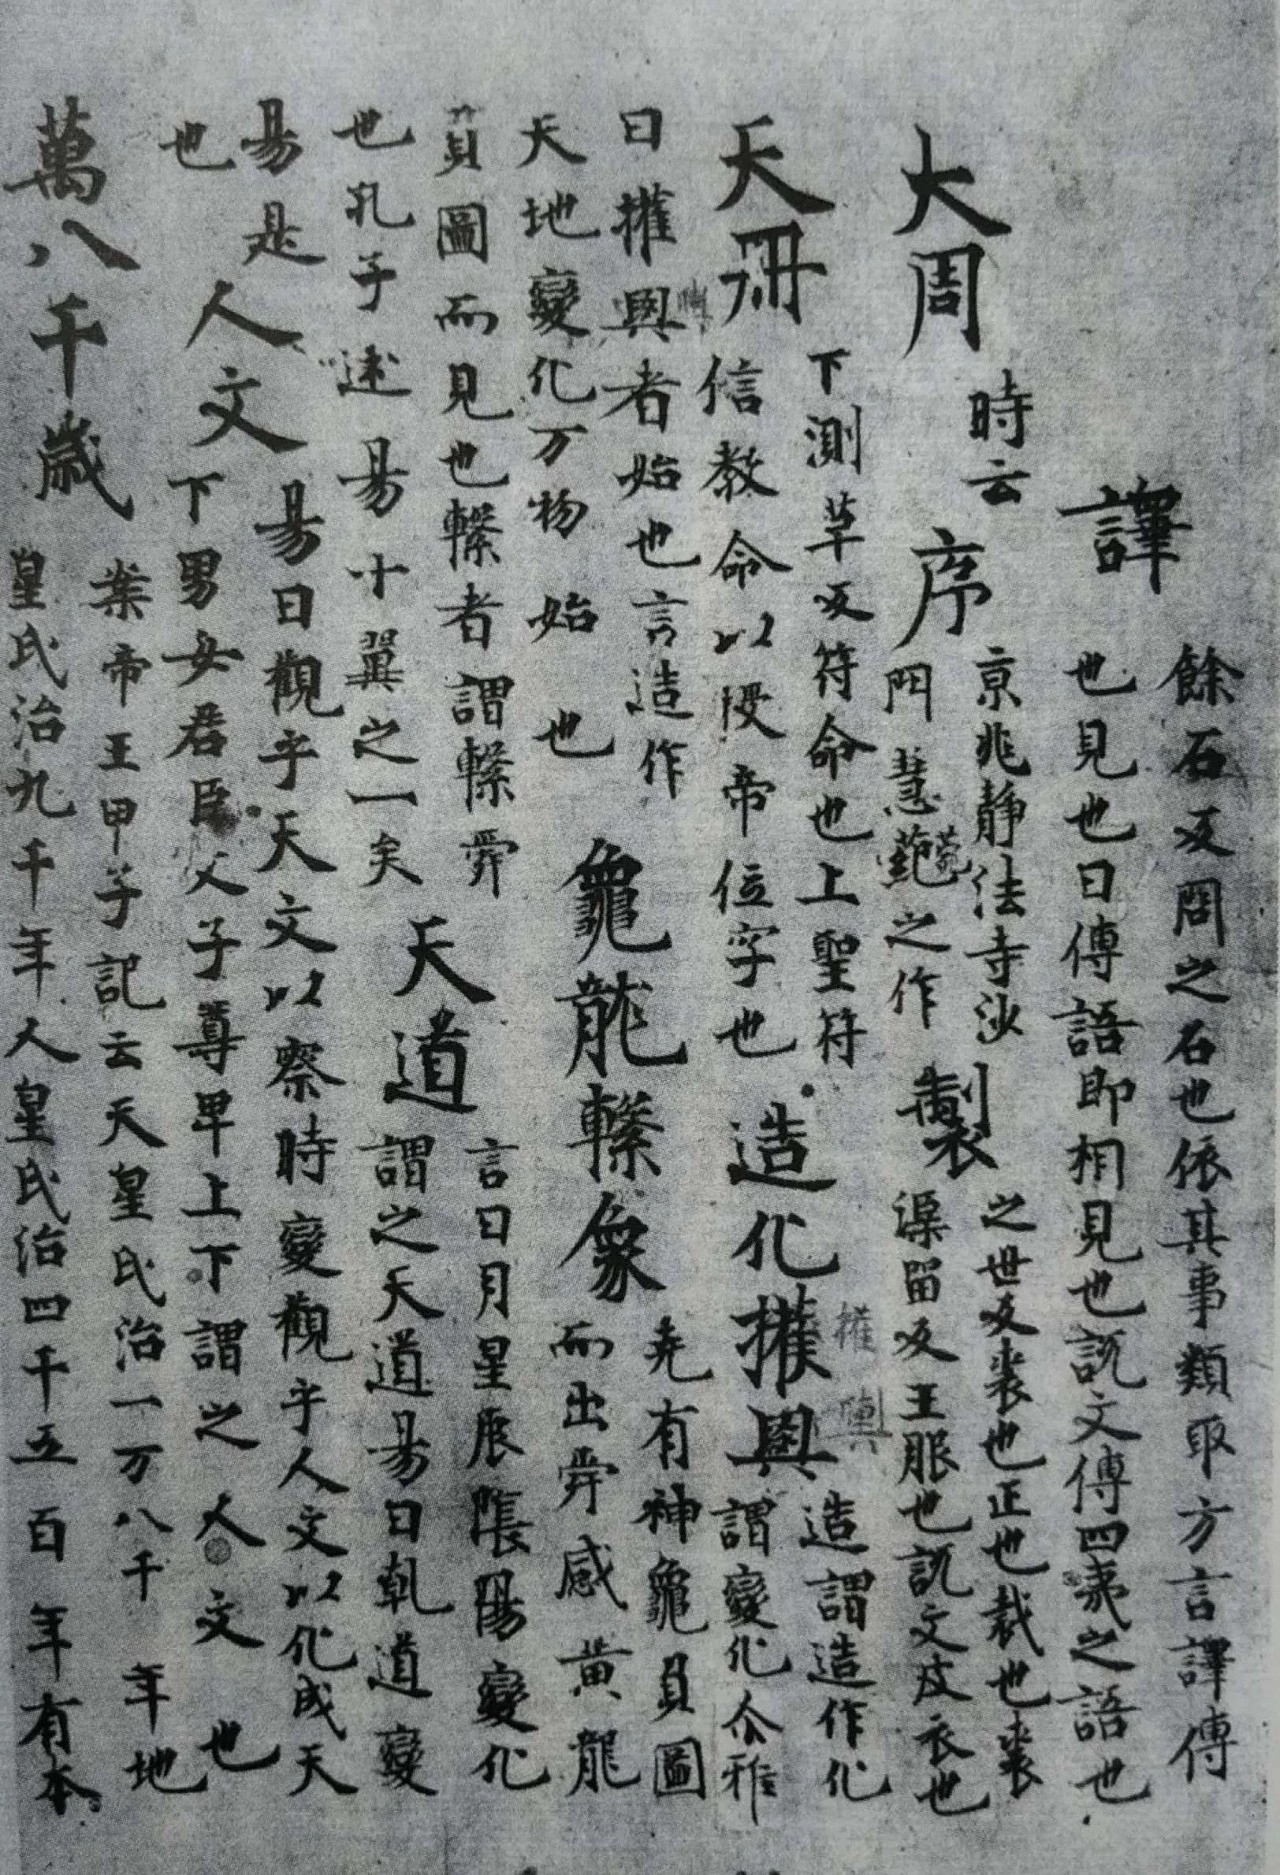 譯
餘石反間之石也依其事類取方言譯傳
也見也曰傳語即相見也說文傳四夷之語也
大周
時云
序
京兆靜法寺沙
門慧菀之作
製
之世反裘也正也裁也裘
渠留反王服也說文皮衣也
天冊
下測草反符命也上聖符
信教命以授帝位字也
造化攉輿
權輿
造謂造作化
謂變化尒雅
曰攉輿者始也言造作
天地變化万物始也
龜龍繫象
堯有神龜負圖
而出舜感黃龍
負圖而見也繫者謂繫舜
也孔子述易十翼之一矣
天道
言日月星辰陰陽變化
謂之天道易曰乹道變
易是
也
人文
易曰觀乎天文以察時變觀乎人文以化成天
下男女君臣父子尊卑上下謂之人文也
萬八千歲
案帝王甲子記云天皇氏治一万八千年地
皇氏治九千年人皇氏治四千五百年有本